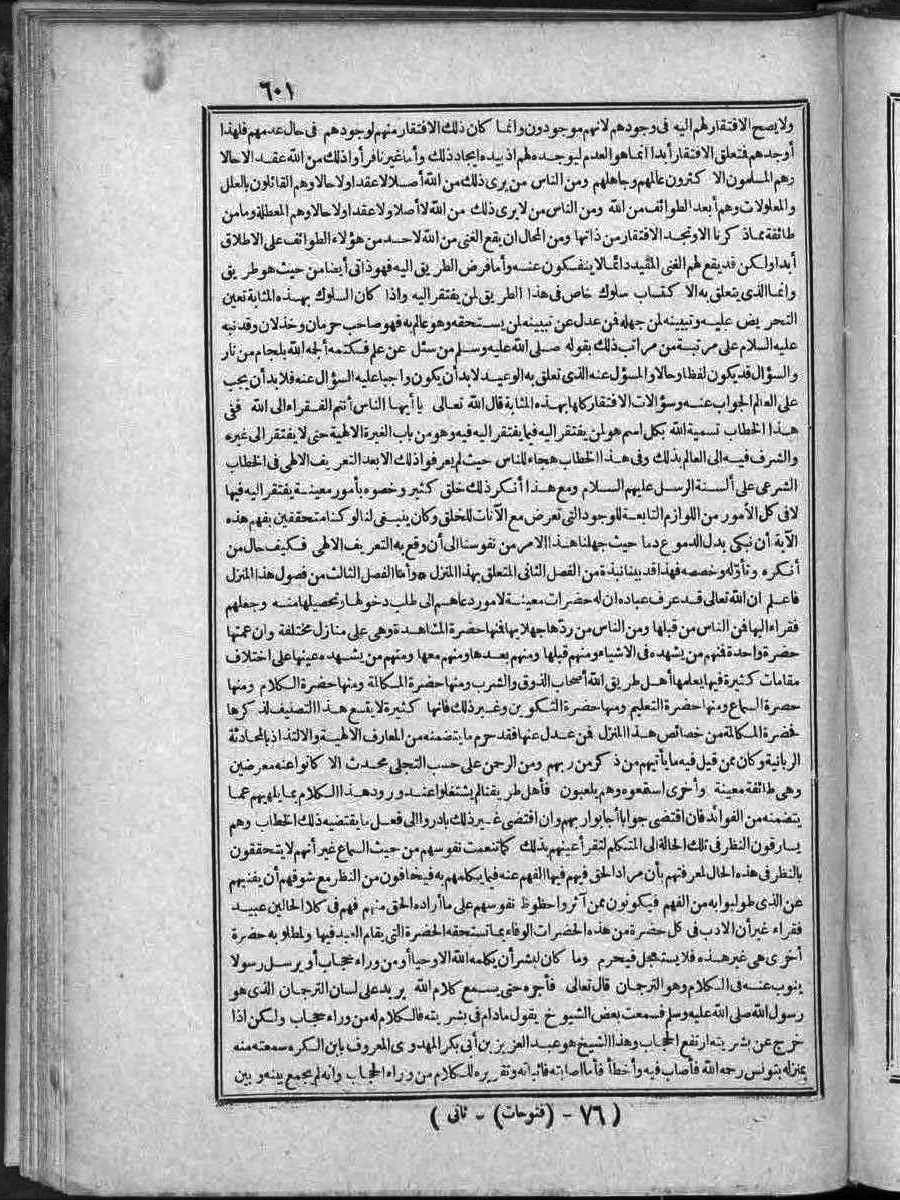 ٦٠١
ولا يصح الافتقار لهم اليه فى وجودهم لانهم موجودون وانما كان ذلك الافتقار منهم لوجودهم فى حال عدمهم فلهذا
أوجدهم فتعلق الافتقار أبدا انما هو العدم ليوجده لهم اذ بيده ايجاد ذلك وأما غيرنا فرأوا ذلك من الله عقدا لا حالا
وهم المسلمون الا كثرون عالمهم وجاهلهم ومن الناس من يرى ذلك من الله أصلا لا عقدا ولا حالا وهم القائلون بالعلل
والمعلولات وهم أبعد الطوائف من الله ومن الناس من لا يرى ذلك من الله لا أصلا ولا عقدا ولا حالا وهم المعطلة وما من
طائفة مماذ كرنا الا وتجد الافتقار من ذاتها ومن المحال ان يقع الغنى من الله لاحد من هؤلاء الطوائف على الاطلاق
أبدا ولكن قد يقع لهم الغنى المقيد دائما لا ينفكون عنه وأما فرض الطريق اليه فهو ذاتى أيضا من حيث هو طريق
وانما الذى يتعلق به الا كتساب سلوك خاص فى هذا الطريق لمن يفتقر اليه واذا كان السلوك بهذه المثابة تعين
التحريض عليه وتبيينه لمن جهله فمن عدل عن تبيينه لمن يستحقه وهو عالم به فهو صاحب حرمان وخذلان وقد نبه
عليه السلام على مرتبة من مراتب ذلك بقوله صلى الله عليه وسلم من سئل عن علم فكتمه ألجمه الله بلجام من نار
والسؤال قد يكون لفظا وحالا والمسؤل عنه الذى تعلق به الوعيد لا بد أن يكون واجبا عليه السؤال عنه فلا بد أن يجب
على العالم الجواب عنه وسؤالات الافتقار كلها بهذه المثابة قال الله تعالى يا أيها الناس أنتم الفقراء الى الله ففى
هذا الخطاب تسمية الله بكل اسم هو لمن يفتقر اليه فيما يفتقر اليه فيه وهو من باب الغيرة الالهية حتى لا يفتقر الى غيره
والشرف فيه الى العالم بذلك وفى هذا الخطاب هجاء للناس حيث لم يعرفوا ذلك الا بعد التعريف الالهى فى الخطاب
الشرعى على ألسنة الرسل عليهم السلام ومع هذا أنكر ذلك خلق كثير وخصوه بأمور معينة يفتقر اليه فيها
لا فى كل الأمور من اللوازم التابعة للوجود التى تعرض مع الآنات للخلق وكان ينبغى لنا لو كنا متحققين بفهم هذه
الآية أن نبكى بدل الدموع دما حيث جهلنا هذا الامر من نفوسنا الى أن وقع به التعريف الالهى فكيف حال من
أنكره وتأوله وخصصه فهذا قد بينا نبذة من الفصل الثانى المتعلق بهذا المنزل * وأما الفصل الثالث من فصول هذا المنزل
فاعلم ان الله تعالى قد عرف عباده ان له حضرات معينة لامور دعاهم الى طلب دخولها وتحصيلها منه وجعلهم
فقراء اليها فمن الناس من قبلها ومن الناس من ردها جهلا بها فمنها حضرة المشاهدة وهى على منازل مختلفة وان عمتها
حضرة واحدة فمنهم من يشهده فى الاشياء ومنهم قبلها ومنهم بعدها ومنهم معها ومنهم من يشهده عينها على اختلاف
مقامات كثيرة فيها يعلمها أهل طريق الله أصحاب الذوق والشرب ومنها حضرة المكالمة ومنها حضرة الكلام ومنها
حضرة السماع ومنها حضرة التعليم ومنها حضرة التكوين وغير ذلك فانها كثيرة لا يسع هذا التصنيف لذكرها
فحضرة المكالمة من خصائص هذا المنزل فمن عدل عنها فقد حرم ما يتضمنه من المعارف الالهية والالتذاذ بالمحادثة
الربانية وكان ممن قيل فيه ما يأتيهم من ذكر من ربهم ومن الرحمن على حسب التجلى محدث الا كانوا عنه معرضين
وهى طائفة معينة وأخرى استمعوه وهم يلعبون فأهل طريقنا لم يشتغلوا عند ورود هذا الكلام بما يلهيهم عما
يتضمنه من الفوائد فان اقتضى جوابا أجابوا ربهم وان اقتضى غير ذلك بادروا الى فعل ما يقتضيه ذلك الخطاب وهم
يسارقون النظر فى تلك الحالة الى المتكلم لتقر أعينهم بذلك كما تنعمت نفوسهم من حيث السماع غير أنهم لا يتحققون
بالنظر فى هذه الحال لمعرفتهم بأن مراد الحق فيهم فيها الفهم عنه فيما يكلمهم به فيخافون من النظر مع شوقهم أن يفنيهم
عن الذى طولبوا به من الفهم فيكونون ممن آثروا حظوظ نفوسهم على ما أراده الحق منهم فهم فى كلا الحالين عبيد
فقراء غير أن الادب فى كل حضرة من هذه الحضرات الوفاء بما تستحقه الحضرة التى يقام العبد فيها ولمطلوبه حضرة
أخرى هى غير هذه فلا يستعجل فيحرم وما كان لبشر أن يكلمه الله الا وحيا أو من وراء حجاب أو يرسل رسولا
ينوب عنه فى الكلام وهو الترجمان قال تعالى فأجره حتى يسمع كلام الله يريد على لسان الترجمان الذى هو
رسول الله صلى الله عليه وسلم فسمعت بعض الشيوخ يقول ما دام فى بشريته فالكلام له من وراء حجاب ولكن اذا
خرج عن بشريته ارتفع الحجاب وهذا الشيخ هو عبد العزيز بن أبى بكر المهدوى المعروف بابن الكره سمعته منه
بمنزله بتونس رحمه الله فأصاب فيه وأخطأ فأما اصابته فاثباته وتقريره للكلام من وراء الحجاب وانه لم يجمع بينه وبين
( ٧٦ - (فتوحات) - ثانى )